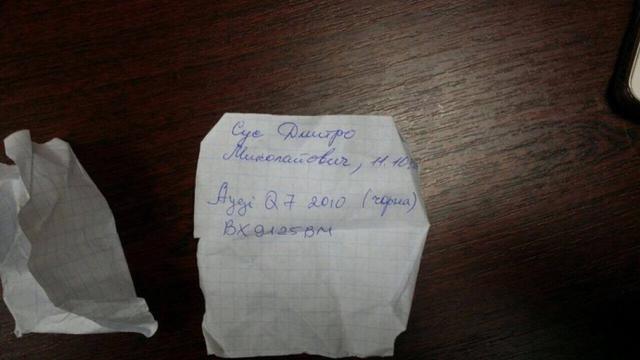 Сус Дмитро
Миколайович, 11.10
Ауді Q7 2010 (чорна)
ВХ9125ВМ